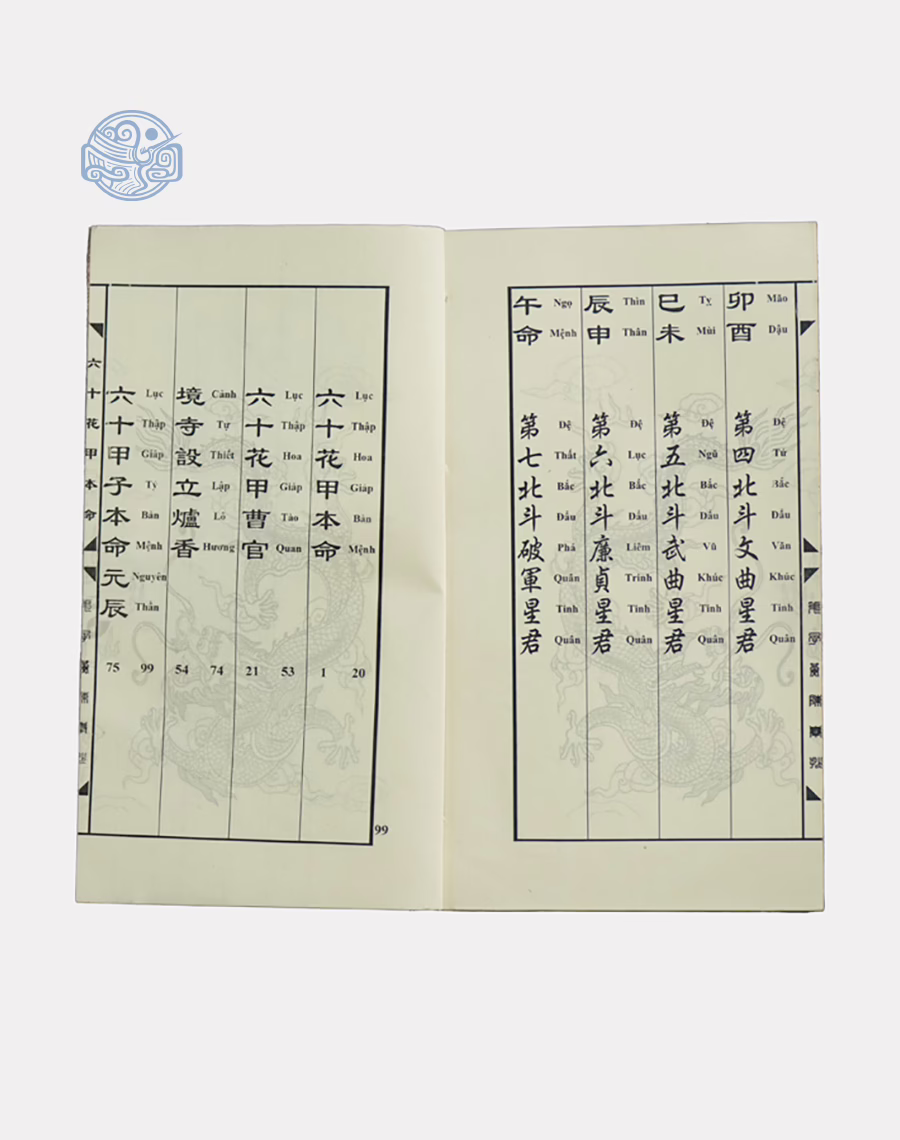 卯酉 第四北斗文曲星君
Mão Dậu Đệ Tứ Bắc Đẩu Văn Khúc Tinh Quân
巳未 第五北斗武曲星君
Tỵ Mùi Đệ Ngũ Bắc Đẩu Vũ Khúc Tinh Quân
辰申 第六北斗廉貞星君
Thìn Thân Đệ Lục Bắc Đẩu Liêm Trinh Tinh Quân
午命 第七北斗破軍星君
Ngọ Mệnh Đệ Thất Bắc Đẩu Phá Quân Tinh Quân
六十花甲本命 1
Lục Thập Hoa Giáp Bản Mệnh 20
六十花甲曹官 21
Lục Thập Hoa Giáp Tào Quan 53
境寺設立爐香 54
Cảnh Tự Thiết Lập Lô Hương 74
六十甲子本命元辰 75
Lục Thập Giáp Tý Bản Mệnh Nguyên Thần 99
六十花甲本命
99